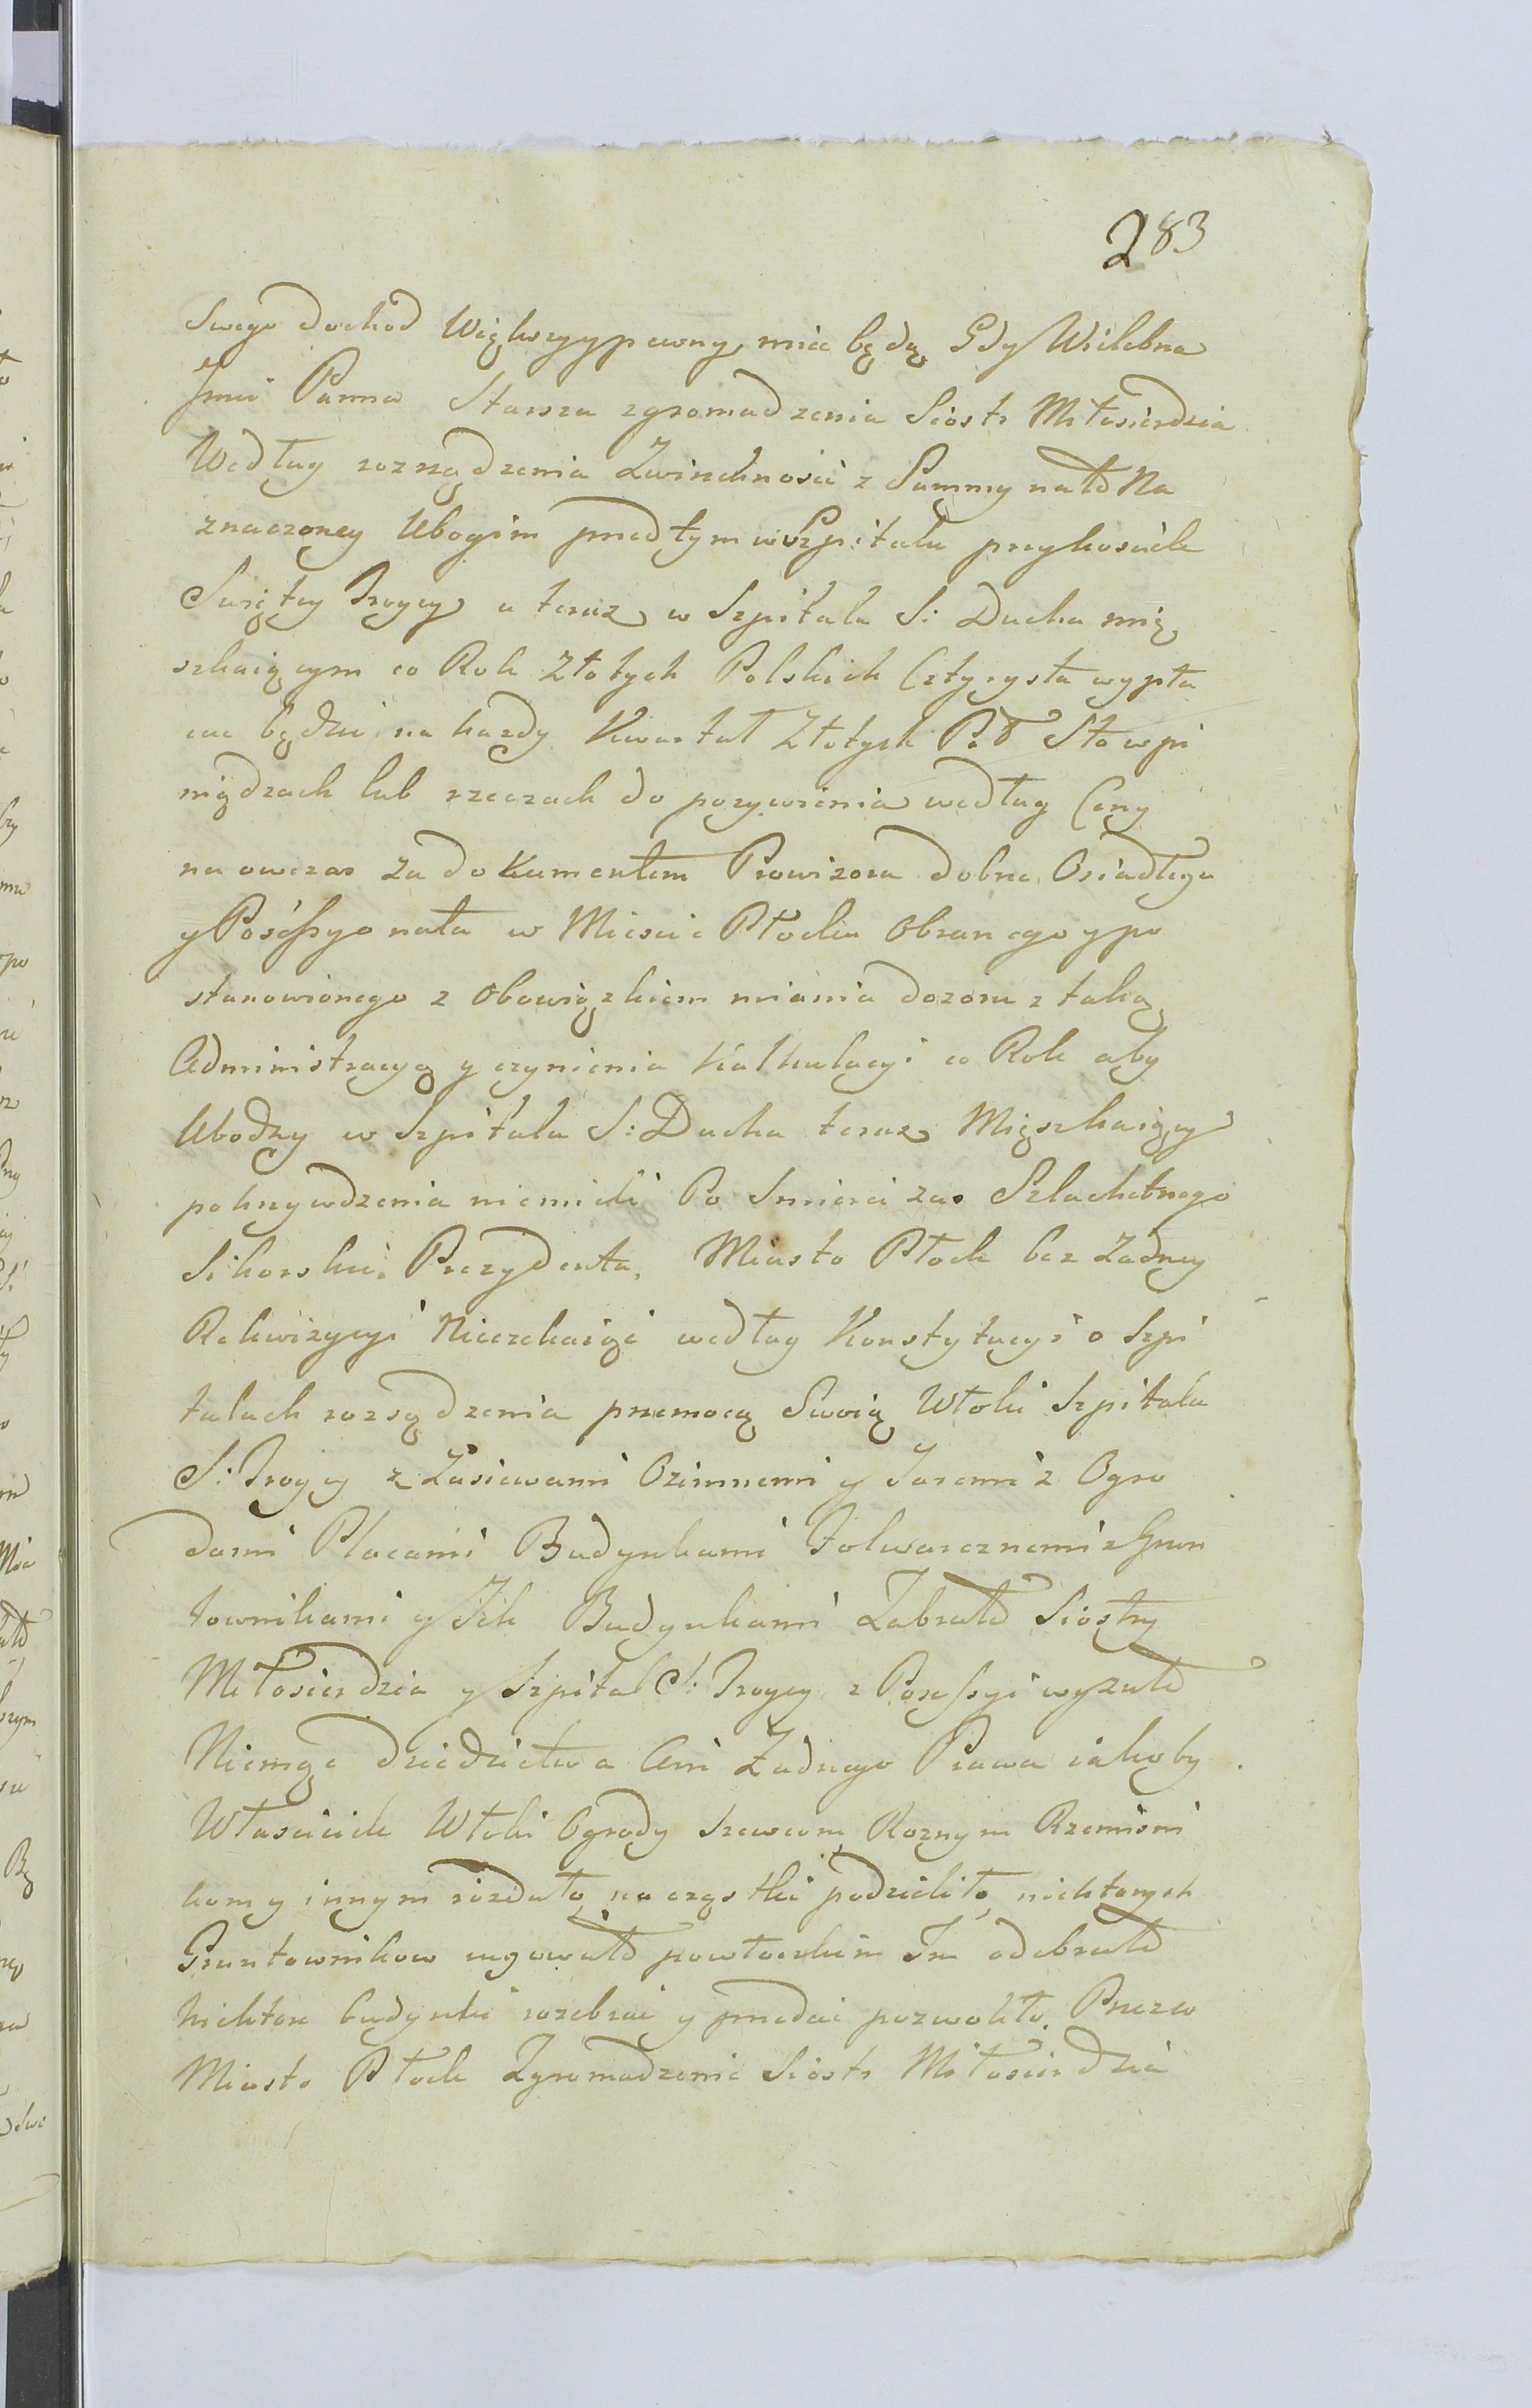 283
Swego dochod Większyy pewny, mie będą Gdy Wielebna
Jmci Panna Starsza zgromadzenia Siostr Miłosierdzia
Według rozrządzenia Zwierzchnosci z Summy na to Na
znaczoney Ubogim przedtym w Szpitalu przykosciele
Swiętey Troycy a teraz w Szpitalu S: Ducha mię
szkaiącym co Rok Złotych Polskich Cztyrysta wypła
cac będzie na kazdy Kwartał Złotych Pol Sto w pi
niądzach lub rzeczach do pozywienia według Ceny
na owczas za dokumentem Prowizora dobrze Osiadłego
y Possessyonata w Miescie Płocku obranego y po
stanowionego z obowiązkiem miania dozoru z taką
Administracyą y czynienia Kalkulacyi co Rok aby
Ubodzy w Szpitalu S: Ducha teraz Mięszkaiący
pokrzywdzenia niemieli Po Smierci zas Szlachetnego
Sikorskie. Prezydenta, Miasto Płock bez Zadney
Rekwizycyi Nieczekaiąc według Konstytucyi o Szpi
talach rozsądzenia przemocą Swoią Włoki Szpitala
S: Troycy z Zasiewami Ozimnemi y Jaremi z Ogro
dami Placami Budynkami Folwarcznemi z Grun
townikami y Ich Budynkami Zabrało Siostry
Miłosierdzia y Szpital S: Troycy z Possessyi wyzuło
Niemaiąc dziedzictwa Ani Zadnego Prawa iakoby
Własciciele Włoki Ogrody Szewcom Roznym Rzemiesni
kom y innym rozdało, na cząstki podzieliło, niektorych
Gruntownikow rugowało powłoczkim Im odebrało
niektore budynki rozebrac y przedac pozwoliło. Przezco
Miasto Płock Zgromadzenie Siostr Miłosierdzia